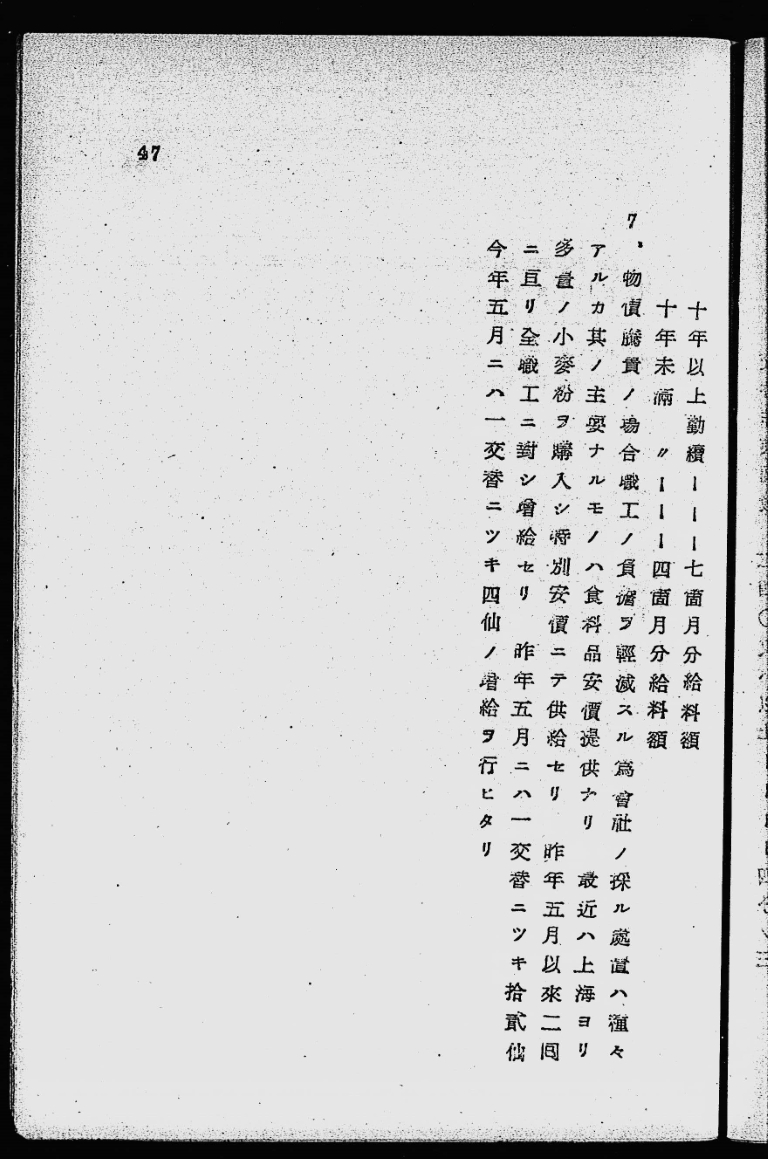 十年以上勤續ーーー七箇月分給料額
十年未滿 〃ーーー四箇月分給料額
7、物價騰貴ノ場合職工ノ負擔ヲ輕減スル爲會社ノ採ル處置ハ種々
アルカ其ノ主要ナルモノハ食料品安價提供ナリ 最近ハ上海ヨリ
多量ノ小麥粉ヲ購入シ特別安價ニテ供給セリ 昨年五月以來二囘
ニ亘リ全職工ニ對シ增給セリ 昨年五月ニハ一交替ニツキ拾貳仙
今年五月ニハ一交替ニツキ四仙ノ增給ヲ行ヒタリ
47